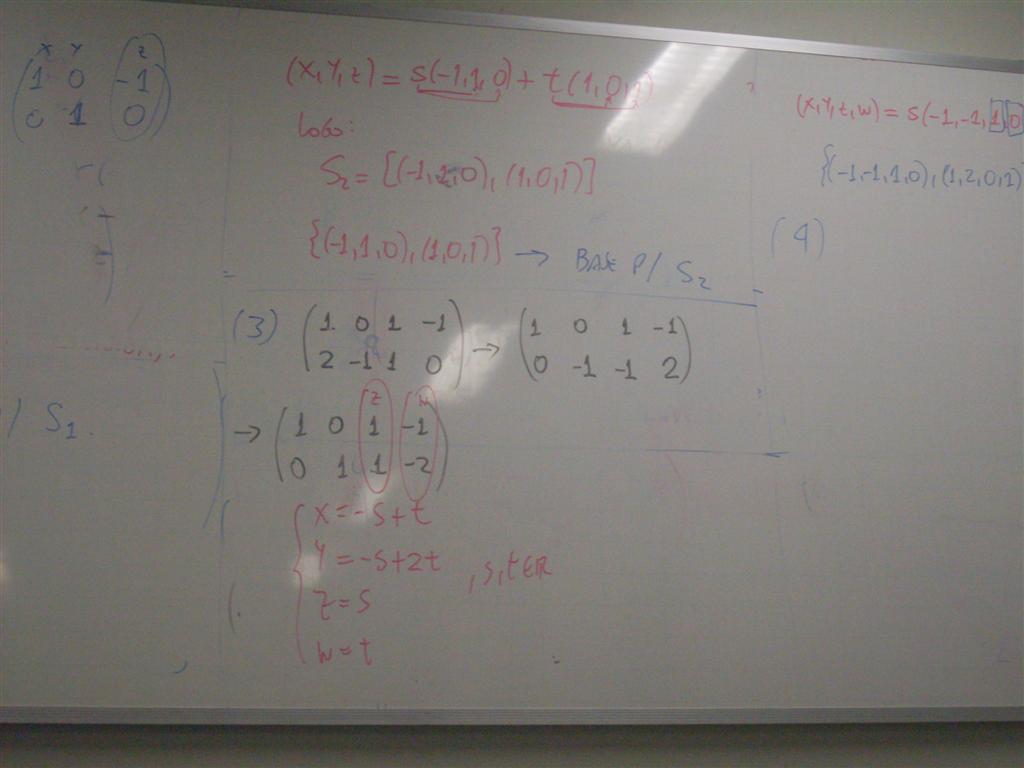 X Y z
1 0 -1
0 1 0
/ S₁.
(X,Y,z) = s(-1,1,0) + t(1,0,1)
LOGO:
S₂ = [(-1,1,0), (1,0,1)]
{(-1,1,0), (1,0,1)} → BASE P/ S₂
(3) (1 0 1 -1 → (1 0 1 -1
2 -1 1 0) 0 -1 -1 2)
z w
→ (1 0 1 -1
0 1 1 -2)
{ X = -s+t
Y = -s+2t , s,t∈ℝ
z = s
w = t
(X,Y,z,w) = s(-1,-1,1,0
{(-1,-1,1,0), (1,2,0,1)
(4)